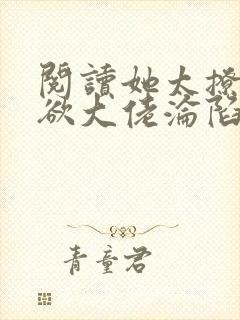 閱讀她太撩
欲大佬淪陷
青童君